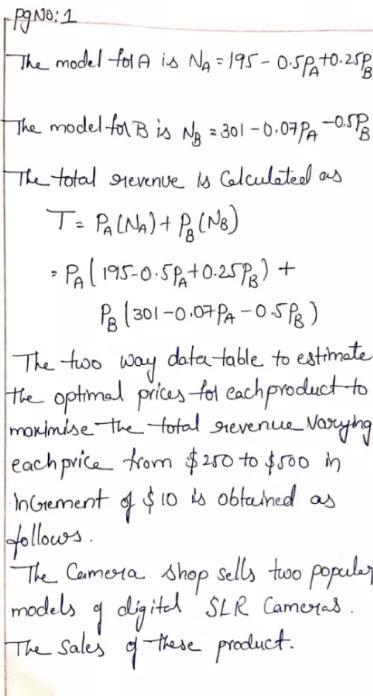 Pg No: 1
The model for A is N_A = 195 - 0.5P_A + 0.25P_B
The model for B is N_B = 301 - 0.07P_A - 0.5P_B
The total revenue is Calculated as
T = P_A(N_A) + P_B(N_B)
= P_A(195 - 0.5P_A + 0.25P_B) +
P_B(301 - 0.07P_A - 0.5P_B)
The two way data table to estimate
the optimal prices for each product to
maximise the total revenue Varying
each price from $250 to $500 in
InGrement of $10 is obtained as
follows.
The Camera shop sells two popular
models of digital SLR Cameras.
The Sales of these product.